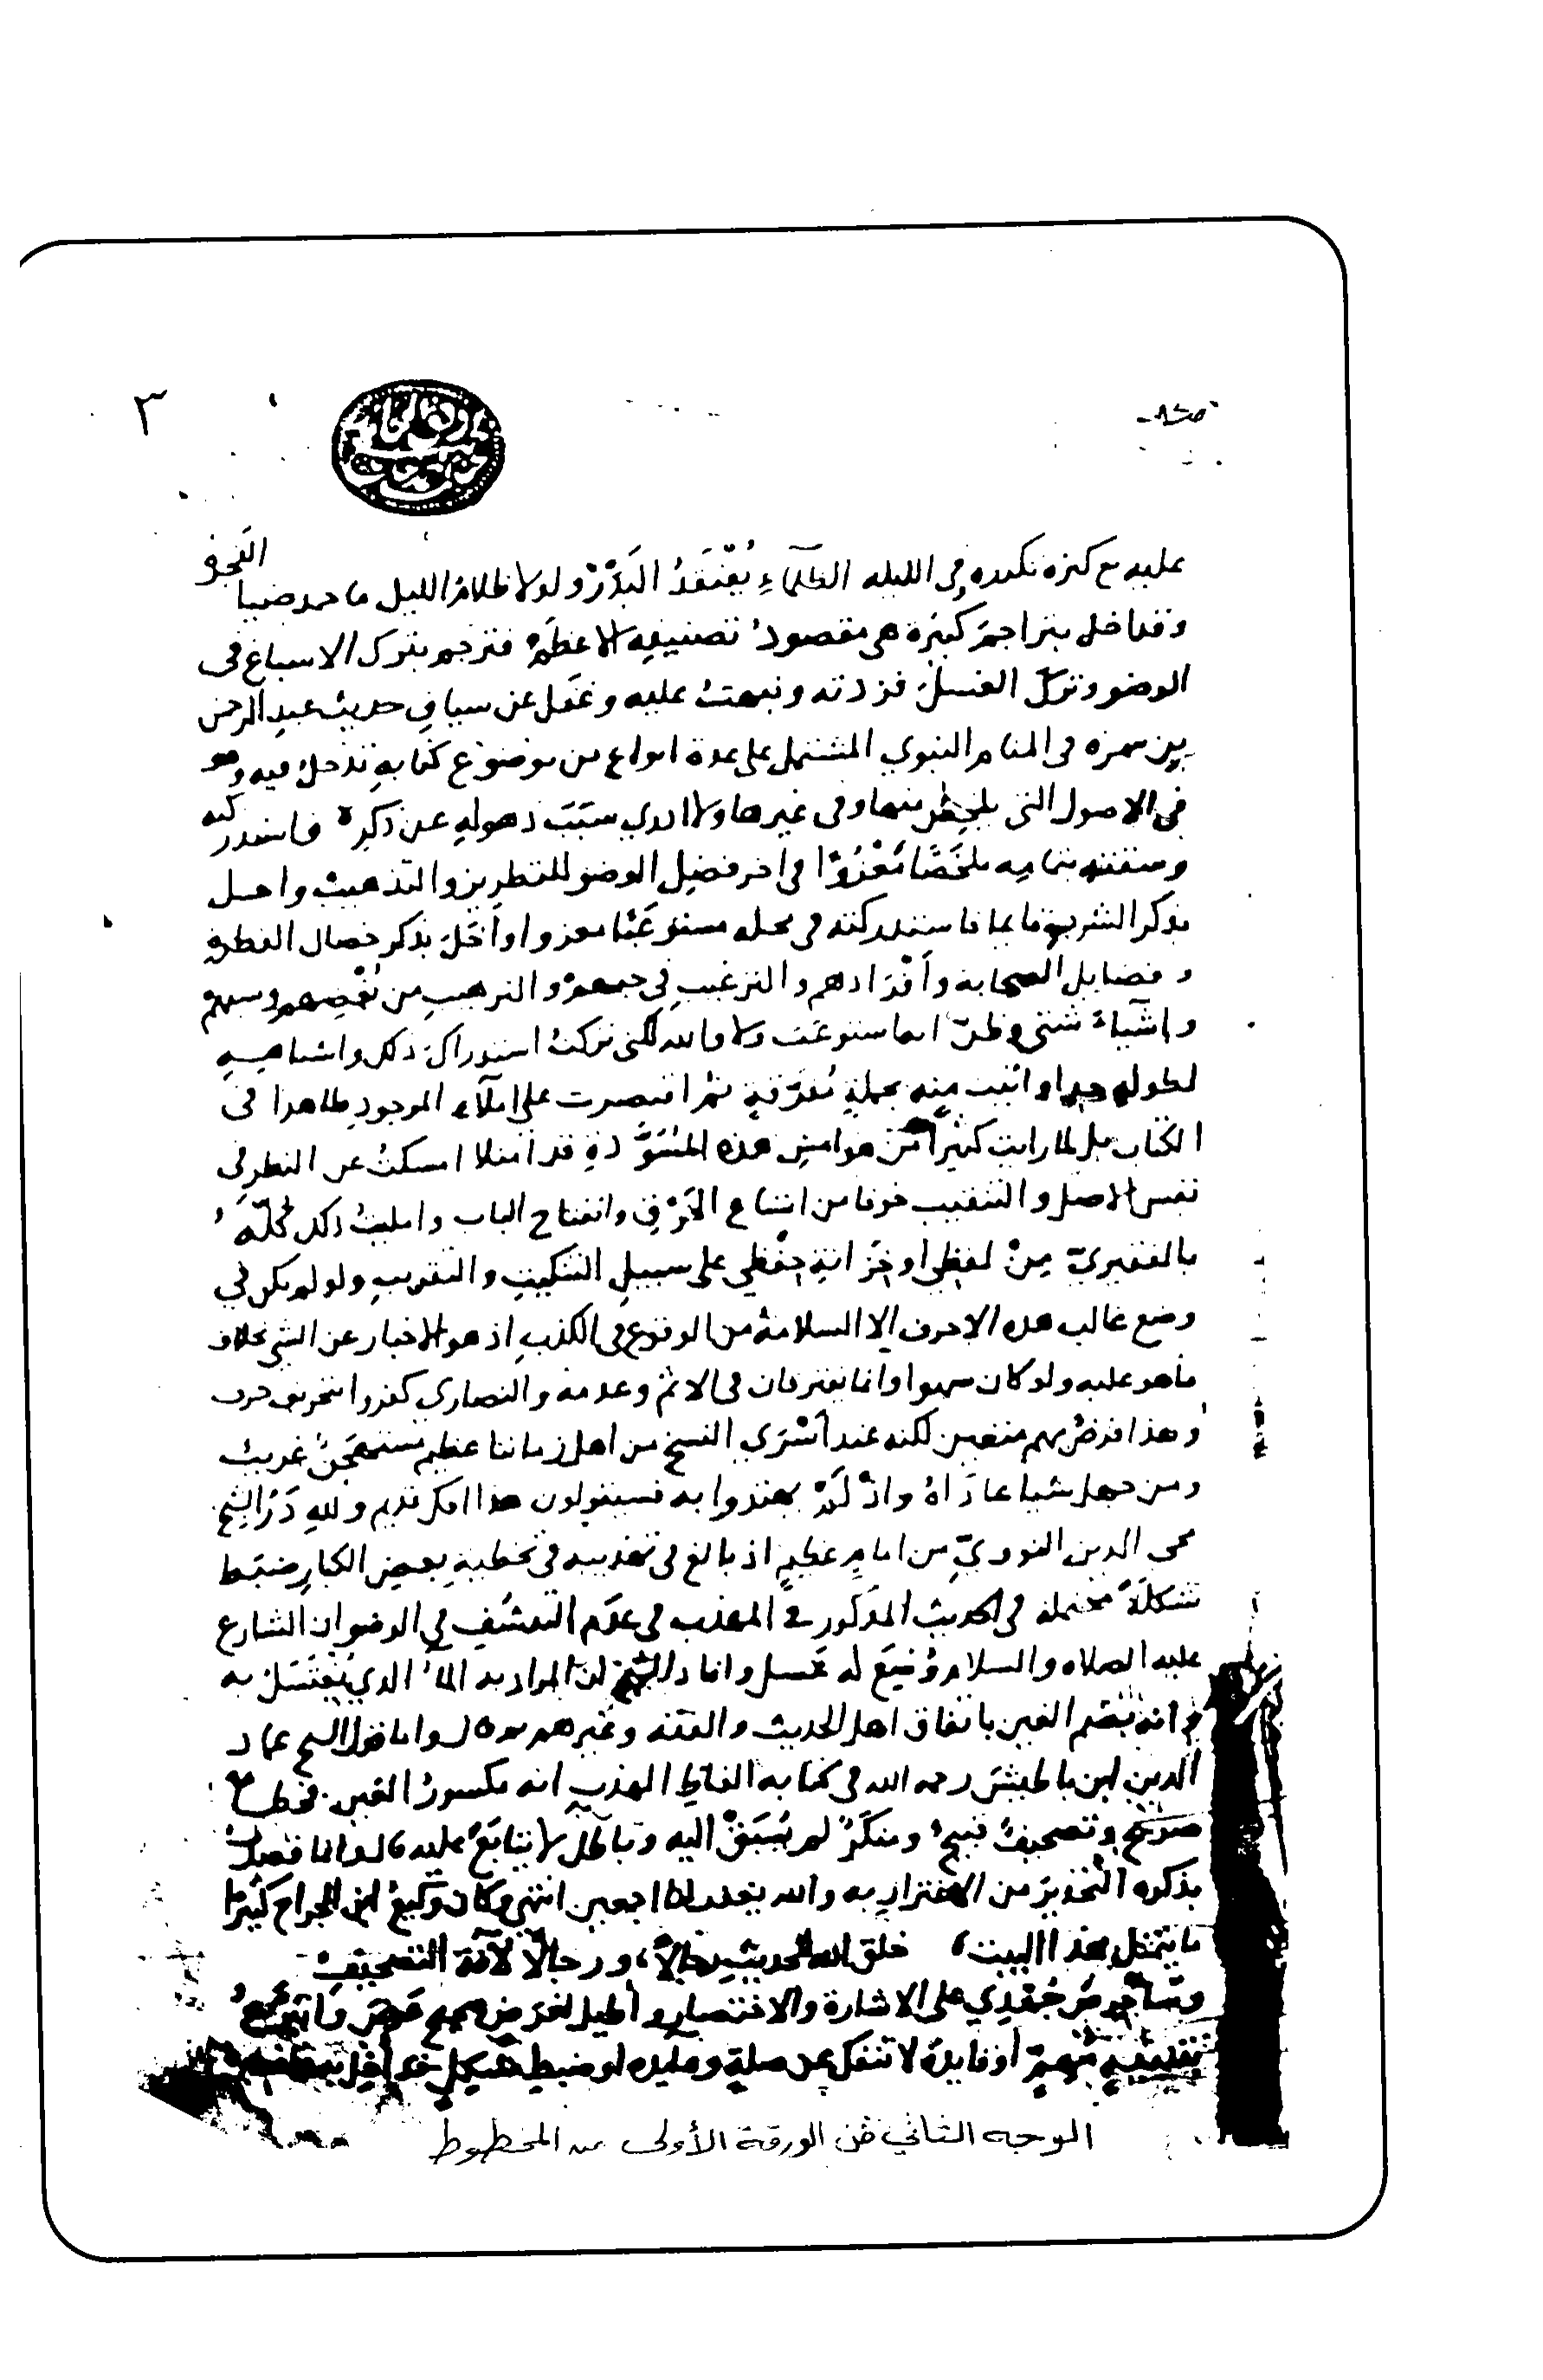 ٣
عليه مع كثرة تكرره في الليلة الظلماء يُفْتَقَدُ البَدْرُ ولولا ظلام الليل ما حمد ضيا النجو
وقد اخل بتراجم كثيرة هي مقصود تصنيفه الاعظم فترجم بترك الاسباغ في
الوضو وترك الغسل فزدته ونبهت عليه وغفل عن سياق حديث عبد الرحمن
بن سمرة في المنام النبوي المشتمل على عدة انواع من موضوع كتابه تدخل فيه وهو
في الاصول التي يلخص منها وفي غيرها ولا ادري سبب ذهوله عن ذكره فاستدركته
وسقته بتمامه ملخصا معزوا في اخر فضل الوضو للتطريز والتذهيب واخل
بذكر الشرب قائما فاستدركته في محله مستوعبا معزوا واخل بذكر خصال الفطرة
وفضايل الصحابة وافرادهم والترغيب في حبهم والترهيب من بغضهم وسبهم
واشياء شتى وظن انما استوعب ولا والله لكني تركت استدراك ذلك واشباهه
لطوله جدا واتيت منه بجملة مفرقة ثم اقتصرت على املاء الموجود ظاهرا في
الكتاب بل لما رايت كثيرا من هوامش هذه المسودة قد امتلا امسكت عن النظر في
نفس الاصل والتنقيب خوفا من اتساع الخرق وانفتاح الباب وامليت ذلك كله
بالفقيري من لفظي او خزانة حفظي على سبيل التنكيت والتقريب ولو لم يكن في
وضع غالب هذه الاحرف الا السلامة من الوقوع في الكذب اذ هو الاخبار عن الشي بخلاف
ما هو عليه ولو كان سهوا وانما يفترقان في الاثم وعدمه والنصارى كفروا بتحريف حرف
وهذا فرض مهم متعين لكنه عند اسرى النسخ من اهل زماننا عظيم مستهجن غريب
ومن جهل شيا عاداه واذ لم يهتدوا به فسيقولون هذا افك قديم ولله در الشيخ
محي الدين النووي من امام عظيم اذ بالغ في تهذيبه في تخطية بعض الكبار ضبط
شكلة محتملة في الحديث المذكور في المهذب في علم التقشف في الوضو ان الشارع
عليه الصلاه والسلام وُضِعَ له غسل وافاد الشيخ ان المراد به الماء الذي يغتسل به
وانه بضم الغين باتفاق اهل الحديث والفقه وغيرهم قال واما قول الشيخ عماد
الدين ابن باطيش رحمه الله في كتابه الفاظ المهذب انه مكسور الغين فخطا
صريح وتصحيف قبيح ومنكر لم يسبق اليه وباطل لا يتابع عليه قال وانما قصدت
بذكره التحذير من الاغترار به والله يغفر لنا اجمعين انتهى وكان وكيع ابن الجراح كثيرا
ما يتمثل بهذا البيت، خلق الله للحديث رجالا، ورجالا لآفة التصحيف
وساحرص جهدي على الاشارة والاختصار واطيل لغرض صحيح
مهم او فايدة لا تنفك عن صلة او ضبط مشكل
الوجه الثاني من الورقة الأولى من المخطوط